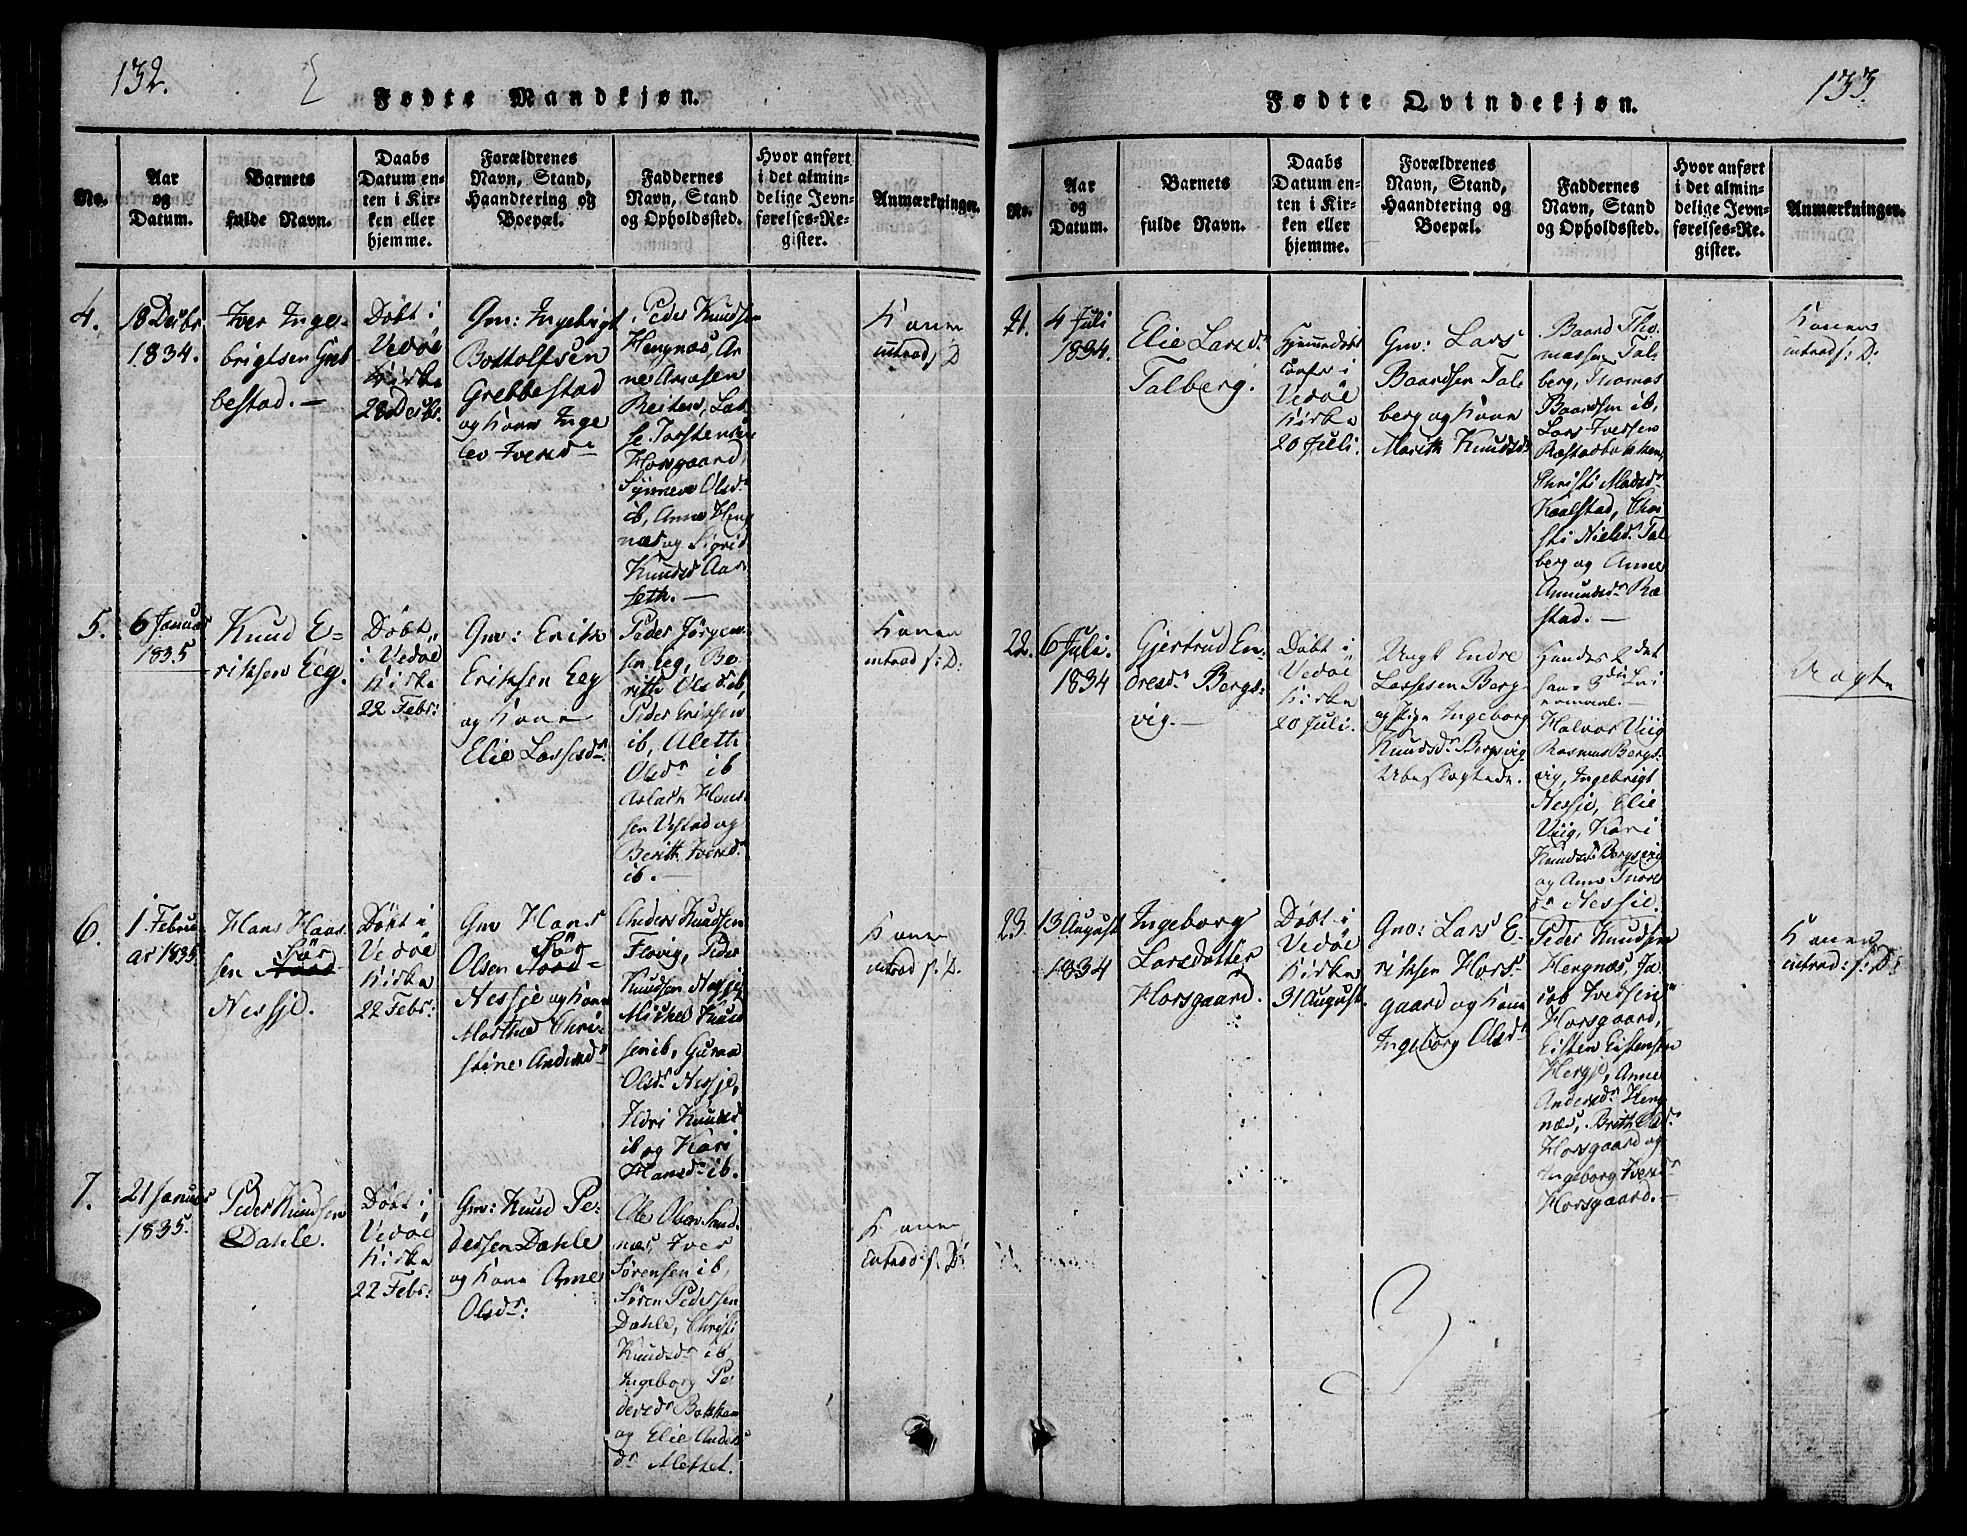 132.
Fødte Mandkjøn.
No.
Aar
og
Datum.
Barnets
fulde Navn.
Daabs
Datum en-
ten i Kir-
ken eller
hjemme.
Forældrenes
Navn, Stand,
Haandtering og
Boepæl.
Faddernes
Navn, Stand
og Opholdssted.
Hvor anført
i det almin-
delige Jevn-
førelses-Re-
gister.
Anmærkninger.
4.
18 Decbr.
1834.
Iver Inge-
brigtsen Greb
bestad. —
Døbt i
Vedøe
Kirke
28 Decbr.
Gm: Ingebrigt
Bottolfsen
Grebbestad
og Kone Inge
lev Iversdr
Peder Knudsen
Hengnæs, Ar
ne Arnesen
Reiten, Las
se Torstensen
Horsgaard,
Synneve Olsdr
ib, Anne Heng
næs og Sigrid
Knudsd Aar
seth. —
Konen
introd: f: D:
5.
6 Januar
1835
Knud E-
riksen Eeg.
Døbt
i Vedøe
Kirke
22 Febr:
Gm: Erik
Eriksen Eeg
og Kone
Elie Lassesdr
Peder Jørgen-
sen Eeg, Be
rith Olsd ib,
Peder Eriksen
ib, Aleth
Olsdr ib
Aslach Hans-
sen Vestad og
Berith Iversdr
ib. —
Konen
introd f: D:
6.
1 Febru
ar 1835
Hans Hans
sen Sør
Nord
Nessje.
Døbt i
Vedøe
Kirke
22 Febr:
Gm Hans
Olsen Sør
Nord-
Nessje og Kone
Marthe Chri-
stine Andersdr
Anders Knudsen
Flovig, Peder
Knudsen Nessje
Michel Knud
sen ib, Guran
Olsdr Nessje,
Ildri Knudsd
ib og Kari
Hansdr ib.
Konen
introd f: D:
7.
21 Januar
1835.
Peder Knudsen
Dahle.
Døbt i
Vedøe
Kirke
22 Febr:
Gm: Knud Pe-
dersen Dahle
og Kone Anne
Olsdr:
Ole Olsen Sand
næs, Iver
Sørensen ib,
Søren Pedersen
Dahle, Christi
Knudsdr ib
Ingeborg Pe-
dersdr
og Elie Anders
dr Mettet.
Konen
introd: f: D:
133.
Fødte Qvindekjøn.
No.
Aar
og
Datum.
Barnets
fulde Navn.
Daabs
Datum en-
ten i Kir-
ken eller
hjemme.
Forældrenes
Navn, Stand,
Haandtering og
Boepæl.
Faddernes
Navn, Stand
og Opholdssted.
Hvor anført
i det almin-
delige Jevn-
førelses-Re-
gister.
Anmærkninger.
21.
4 Juli
1834.
Elie Larsdr
Talberg.
Hjemmedøbt
Confr i
Vedøe
Kirke
20 Juli.
Gm: Lars
Baardsen Tal
berg og Kone
Marith Knudsdr
Baard Tho-
massen Tal
berg, Thomas
Baardsen ib,
Lars Iversen
Ræstadbakken,
Christi Madsdr
Kaalstad, Chri
sti Nielsdr Tal
berg og Anne
Amundsdr Ræ
stad. —
Konens
introd f: D:
22.
6 Juli.
1834
Gjertrud En-
dresdr Bergs-
vig. —
Døbt i
Vedøe
Kirke
20 Juli.
Ungk Endre
Lassesen Berg
og Pige Ingeborg
Knudsdr Bergsvig
Ubeslægtede.
Hendes 2det
hans 3die Lei
ermaal. —
Halvor Viig
Rasmus Bergs-
vig, Ingebrigt
Nessje, Elie
Viig, Kari
Knudsdr Bergsvig
og Anne Tores
dr Nessje.
Uægte
23.
13 August
1834
Ingeborg
Larsdatter
Horsgaard.
Døbt i
Vedøe
Kirke
31 August.
Gm: Lars E-
riksen Hors-
gaard og Kone
Ingeborg Olsdr
Peder Knudsen
Hengnæs, Ja
cob Iversen
Horsgaard,
Eisten Eistensen
Hergje, Anne
Andersdr Heng
næs, Brith Olsdr
Horsgaard og
Ingeborg Iversdr
Horsgaard. —
Konen
introd: f: D: